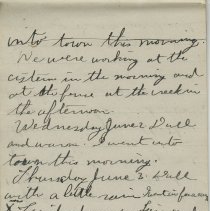 into town this morning.
We were working at the
cistern in the morning and
at the fence at the creek in
the afternoon.
Wednesday June 2 Dull
and warm. I went into
town this morning.
Thursday June 3. Dull
with a little rain